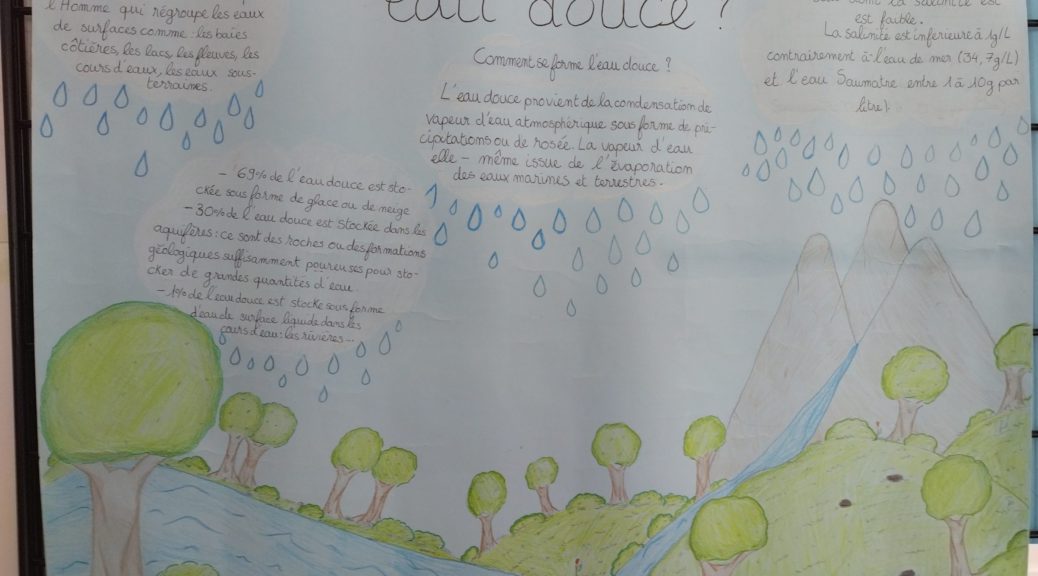 eau douce ?
l'Homme qui régroupe les eaux
de surfaces comme : les baies
côtières, les lacs, les fleuves, les
cours d'eaux, les eaux sous-
terraines.
Comment se forme l'eau douce ?
L'eau douce provient de la condensation de
vapeur d'eau atmosphérique sous forme de pré-
cipitations ou de rosée. La vapeur d'eau
elle-même issue de l'évaporation
des eaux marines et terrestres.
est faible.
La salinité est inferieure à 1g/L
contrairement à l'eau de mer (34,7g/L)
et l'eau Saumatre entre 1 à 10g par
litre)
- 69% de l'eau douce est sto-
ckée sous forme de glace ou de neige
- 30% de l'eau douce est stockée dans les
aquifères : ce sont des roches ou des formations
géologiques suffisamment poureuses pour sto-
cker de grandes quantités d'eau
- 1% de l'eau douce est stocke sous forme
d'eau de surface liquide dans les
cours d'eau : les rivières...